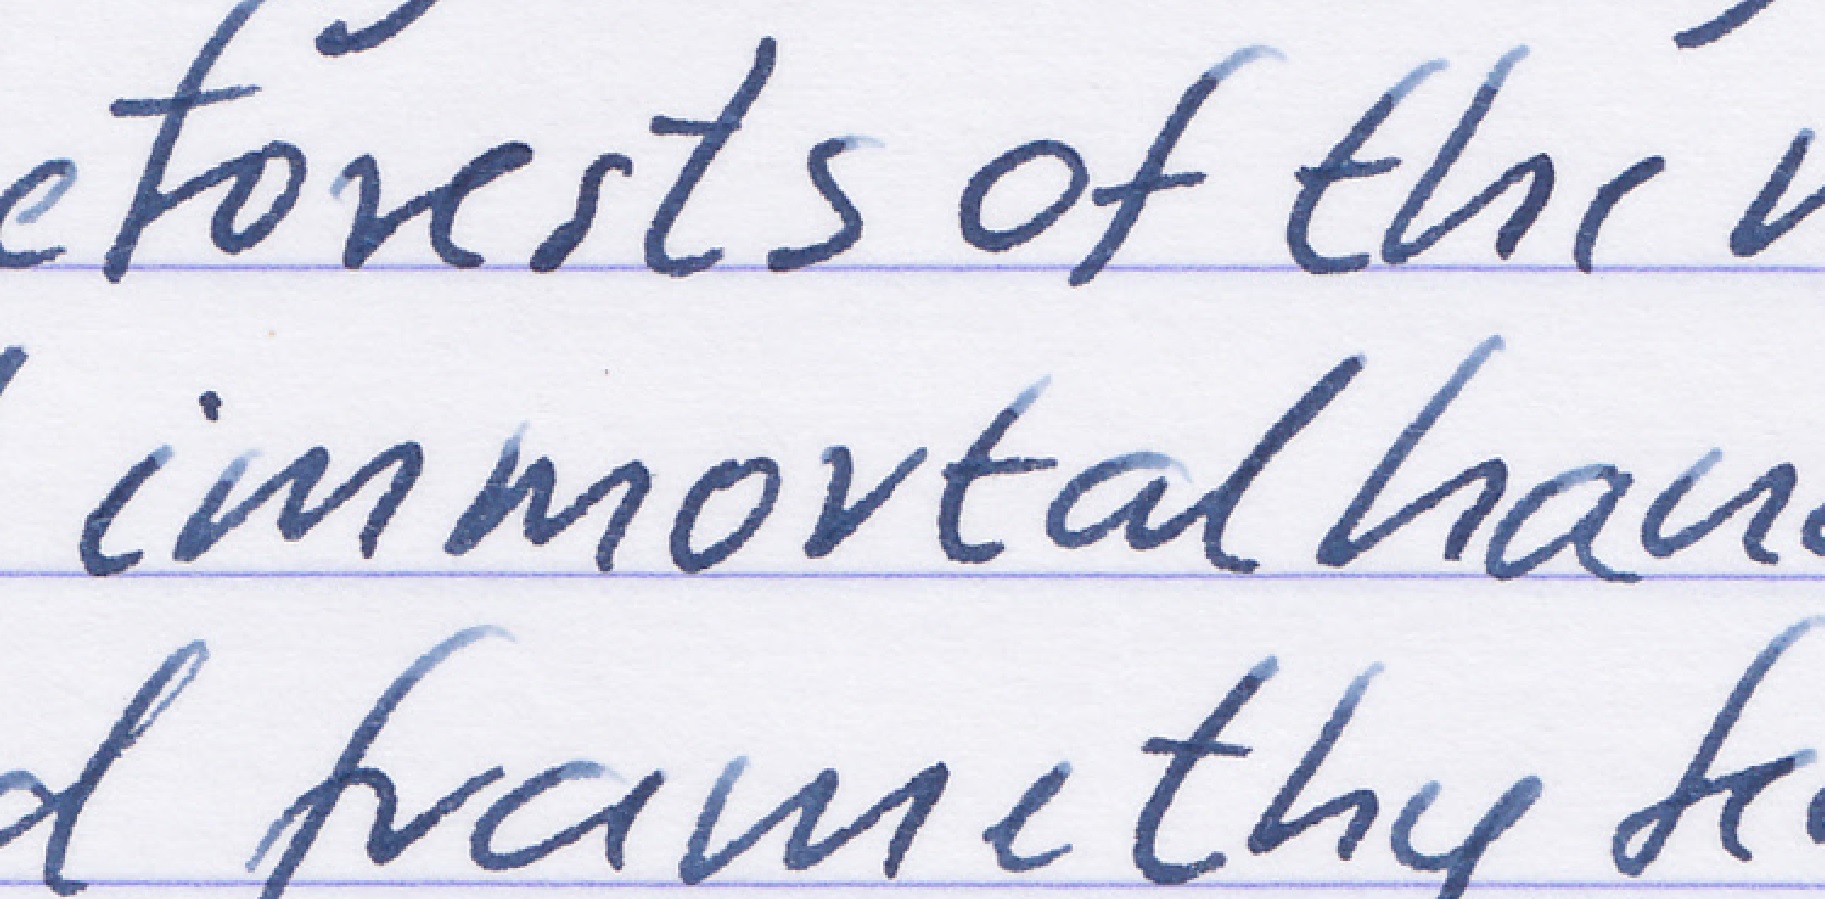 e forests of the n
immortal han
d frame thy fea